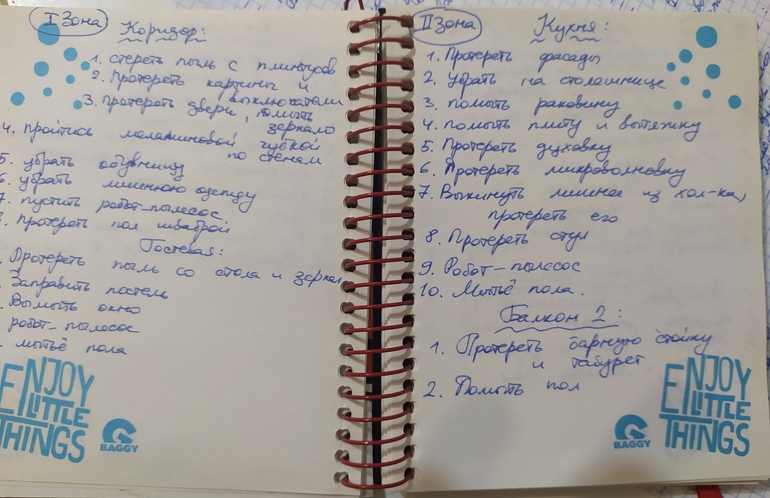 I Зона
Коридор:
1. стереть пыль с плинтусов
2. Протереть картины и
выключатели
3. протереть двери, помыть
зеркало
4. пройтись меламиновой губкой
по стенам
5. убрать обувницу
6. убрать лишнюю одежду
7. пустить робот-пылесос
8. протереть пол шваброй
Гостевая:
Протереть пыль со стола и зеркал
Заправить постель
Вымыть окно
робот-пылесос
мытьё пола
ENJOY
LITTLE
THINGS
BAGGY
II Зона
Кухня:
1. Протереть фасады
2. Убрать на столешнице
3. помыть раковину
4. помыть плиту и вытяжку
5. Протереть духовку
6. Протереть микроволновку
7. Выкинуть лишнее из хол-ка,
протереть его
8. Протереть стул
9. Робот-пылесос
10. Мытьё пола.
Балкон 2:
1. Протереть барную стойку
и табурет
2. Помыть пол
BAGGY
ENJOY
LITTLE
THINGS